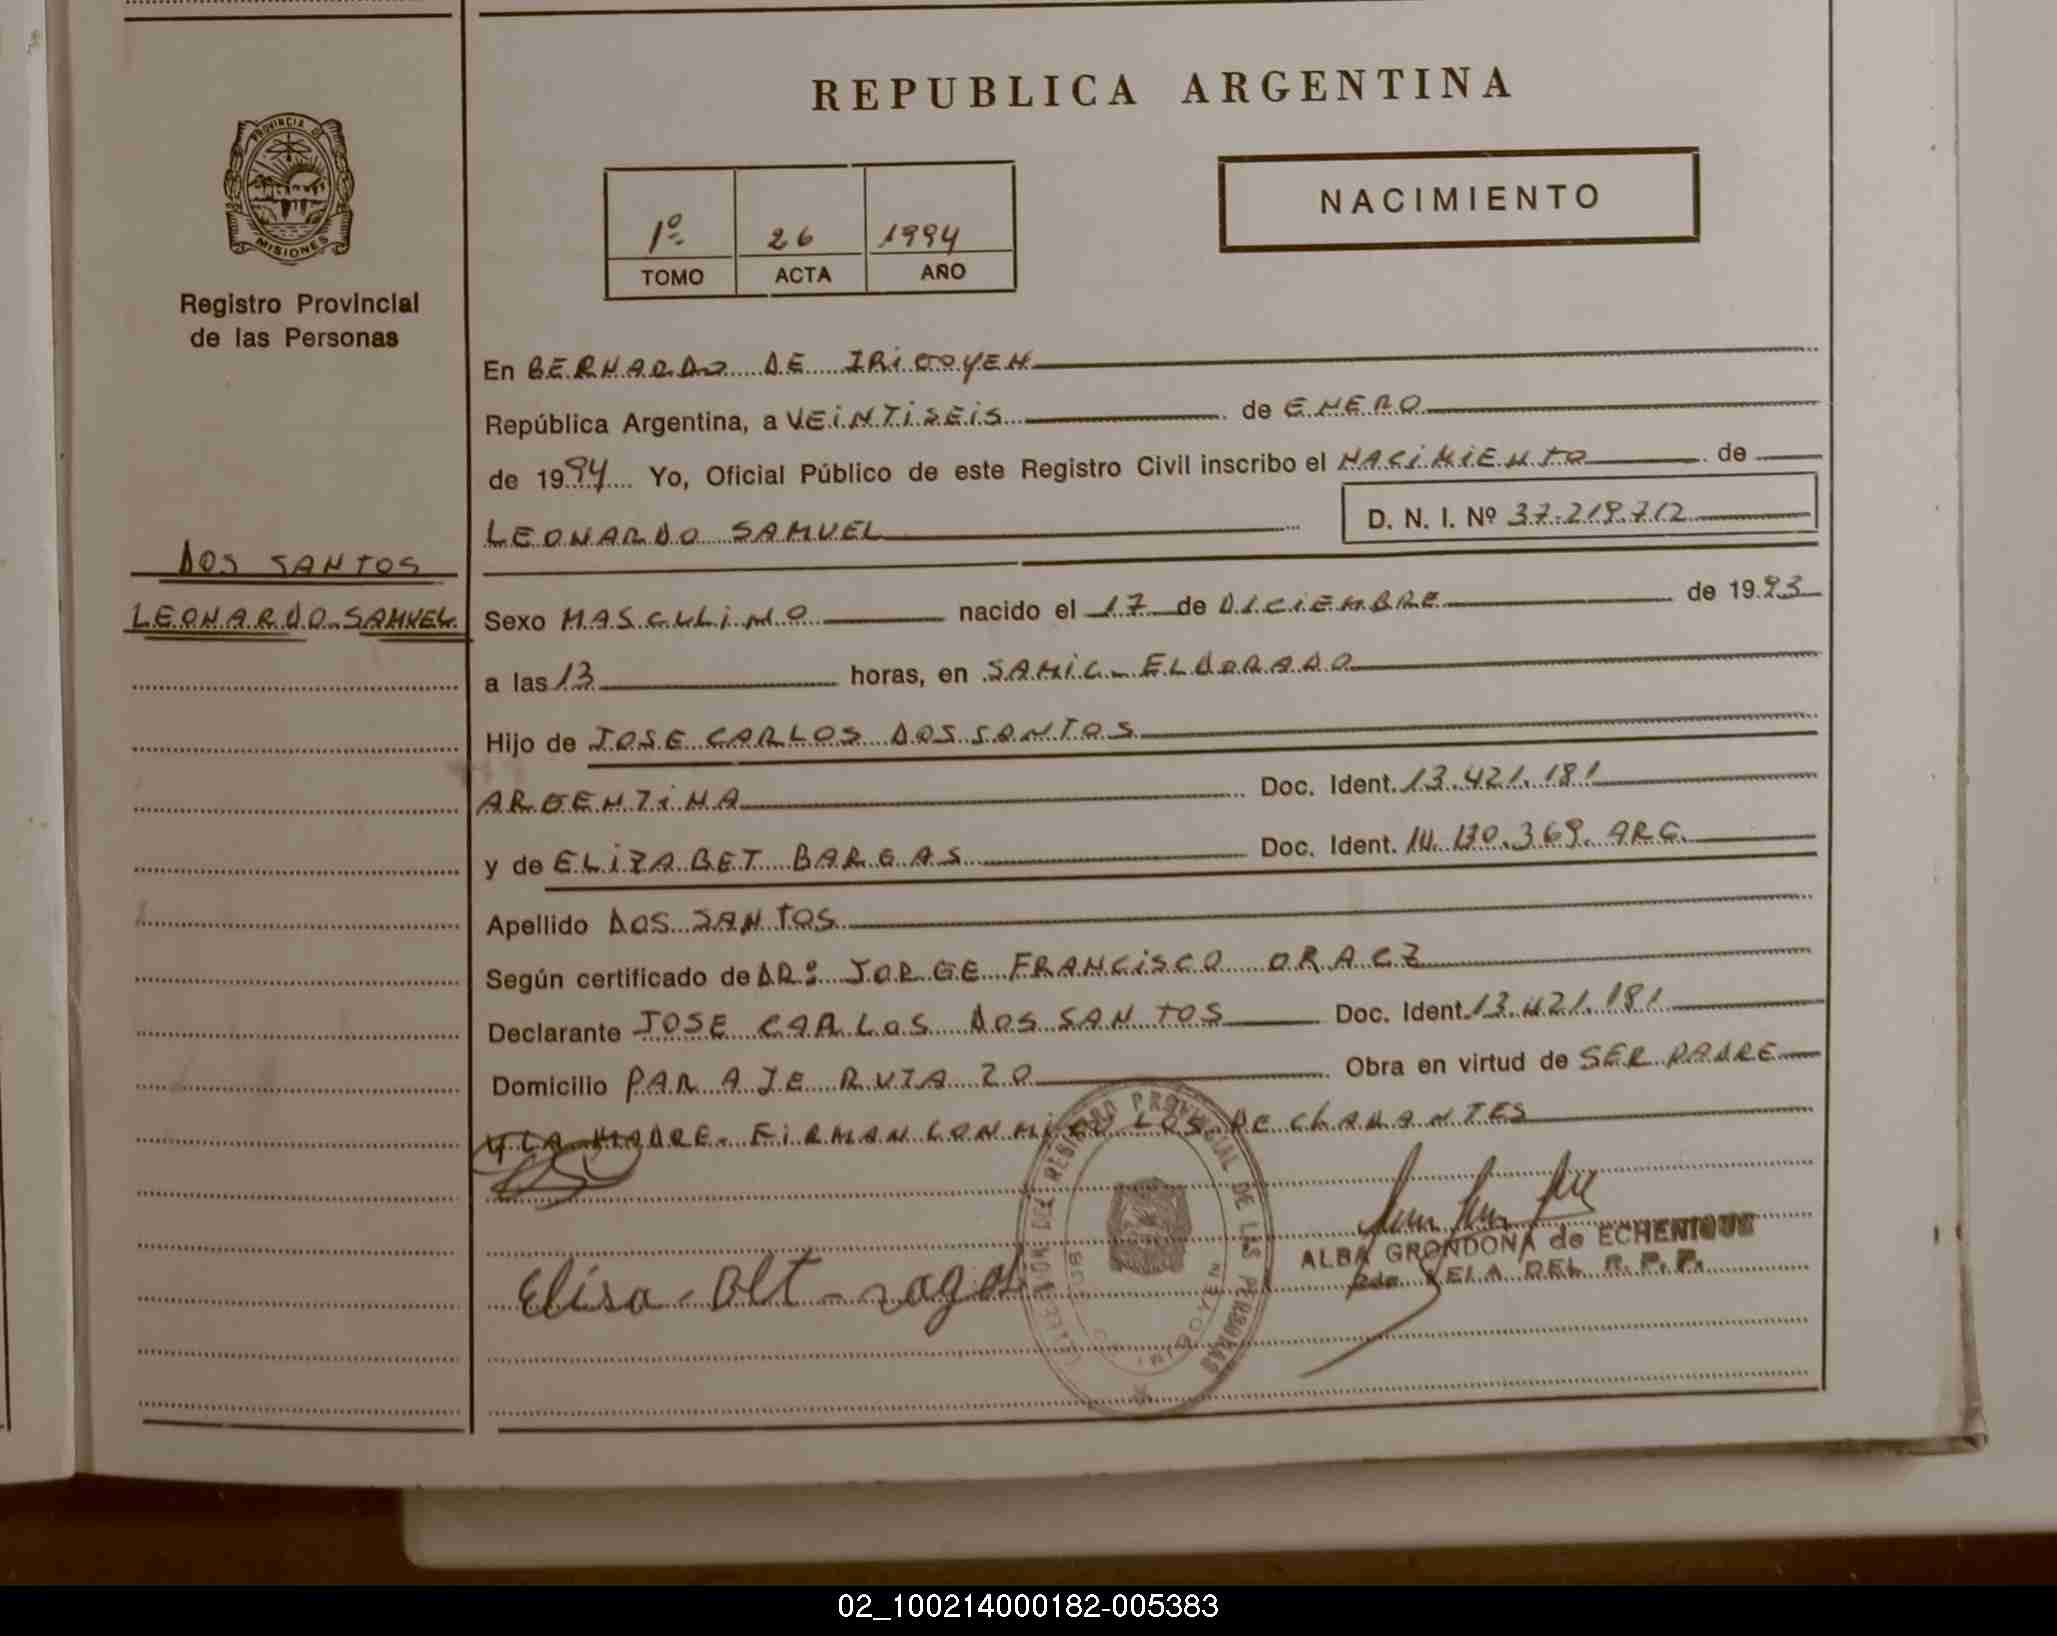 REPUBLICA ARGENTINA
PROVINCIA DE
MISIONES
Registro Provincial
de las Personas
1º 26 1994
TOMO ACTA AÑO
NACIMIENTO
En BERNARDO DE IRIGOYEN
República Argentina, a VEINTISEIS de ENERO
de 1994 Yo, Oficial Público de este Registro Civil inscribo el NACIMIENTO de
LEONARDO SAMUEL D. N. I. Nº 37.219.712
DOS SANTOS
LEONARDO SAMUEL
Sexo MASCULINO nacido el 17 de DICIEMBRE de 1993
a las 13 horas, en SAMIC - ELDORADO
Hijo de JOSE CARLOS DOS SANTOS
ARGENTINA Doc. Ident. 13.421.181
y de ELIZABET BARGAS Doc. Ident. 14.130.369 ARG.
Apellido DOS SANTOS
Según certificado de DR: JORGE FRANCISCO ORACZ
Declarante JOSE CARLOS DOS SANTOS Doc. Ident. 13.421.181
Domicilio PARAJE RUTA 20 Obra en virtud de SER PADRE
Y LA MADRE. FIRMAN CONMIGO LOS DECLARANTES
REGISTRO PROVINCIAL DE LAS PERSONAS
ALBA GRONDONA de ECHENIQUE
DEL R. P. P.
02_100214000182-005383